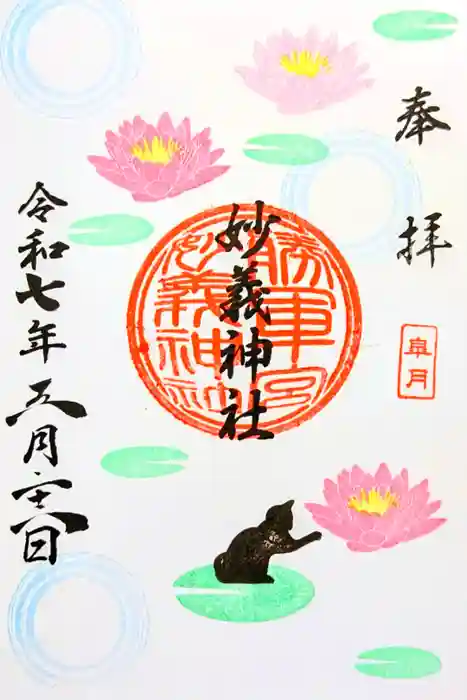 奉拝
皐月
勝軍宮
妙義神社
妙義神社
令和七年五月二十八日